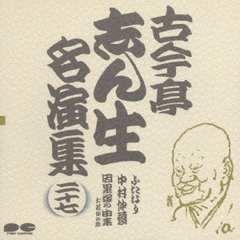 古今亭
志ん生
名演集
二十七
ふたなり
中村仲蔵
因果塚の由来
PONY CANYON